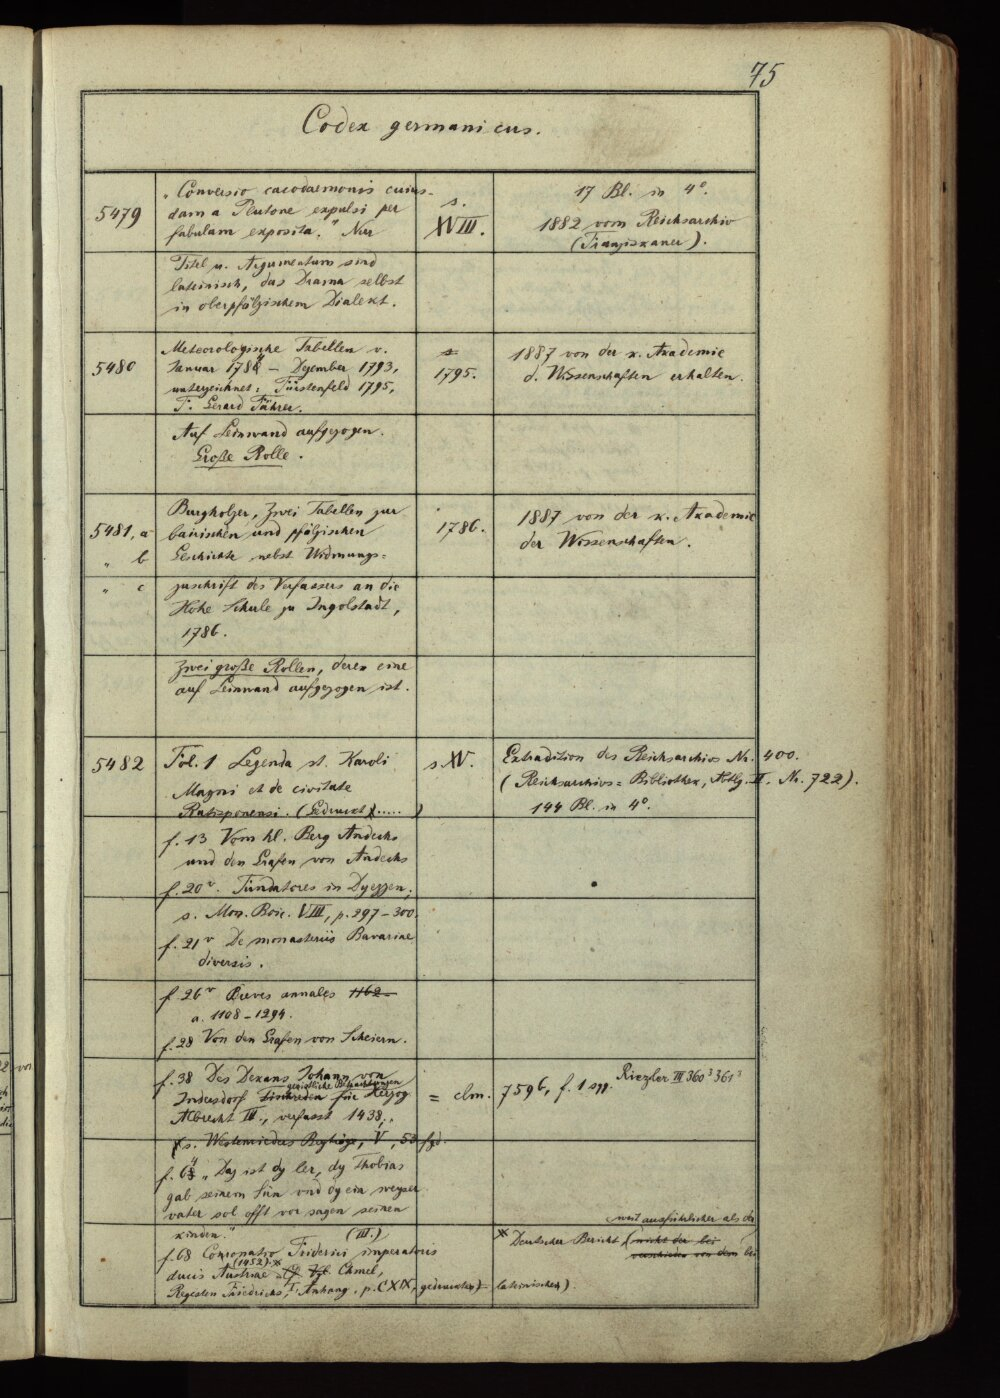 75
Codex germanicus.
5479
„Conversio cacodaemonis cuius-
dam a Plutone expulsi per
fabulam exposita." Nur
Titel u. Argumentum sind
lateinisch, das Drama selbst
in oberpfälzischem Dialekt.
s.
XVIII.
17 Bl. in 4°.
1882 vom Reichsarchiv
(Franziskaner).
5480
Meteorologische Tabellen v.
Januar 178 – Dezember 1793,
unterzeichnet: Fürstenfeld 1795,
P. Gerard Führer.
Auf Leinwand aufgezogen.
Große Rolle.
1795.
1887 von der k. Akademie
d. Wissenschaften erhalten.
5481, a
„ b
„ c
Burgholzer, Zwei Tabellen zur
bairischen und pfälzischen
Geschichte nebst Widmungs=
zuschrift des Verfassers an die
Hohe Schule zu Ingolstadt,
1786.
Zwei große Rollen, deren eine
auf Leinwand aufgezogen ist.
1786.
1887 von der k. Akademie
der Wissenschaften.
5482
Fol. 1 Legenda st. Karoli
Magni et de civitate
Ratisponensi. (Gedruckt .....)
f. 13 Vom hl. Berg Andechs
und den Grafen von Andechs
f. 20v. Fundatores in Dyezzen;
s. Mon. Boic. VIII, p. 297–300.
f. 21v De monasteriis Bavariae
diversis.
f. 26v Breves annales 1162–
a. 1108–1294.
f. 28 Von den Grafen von Scheiern.
f. 38 Des Dekans Johann von
geistliche Betrachtungen
Indersdorf Tischreden für Herzog
Albrecht III., verfasst 1438,
(s. Westenrieders Beyträge, V, 53 fgd.
f. 64 „Daz ist dy ler, dy Thobias
gab seinem sun vnd dy ein weyser
vater sol offt vor sagen seinen
kinden."
f. 68 Coronatio Friderici (III.) imperatoris
(1452) ×
ducis Austriae Chmel,
Regesten Friedrichs, I. Anhang, p. CXIX, gedruckten lateinischen).
s XV.
Extradition des Reichsarchivs Nr. 400.
(Reichsarchivs=Bibliothek, Abtlg. II. Nr. 722).
144 Bl. in 4°.
= clm. 7596, f. 1 sqq.
Riezler III 360³ 361³
weit ausführlicher als der
× Deutscher Bericht (nicht der bei
verschieden von dem bei